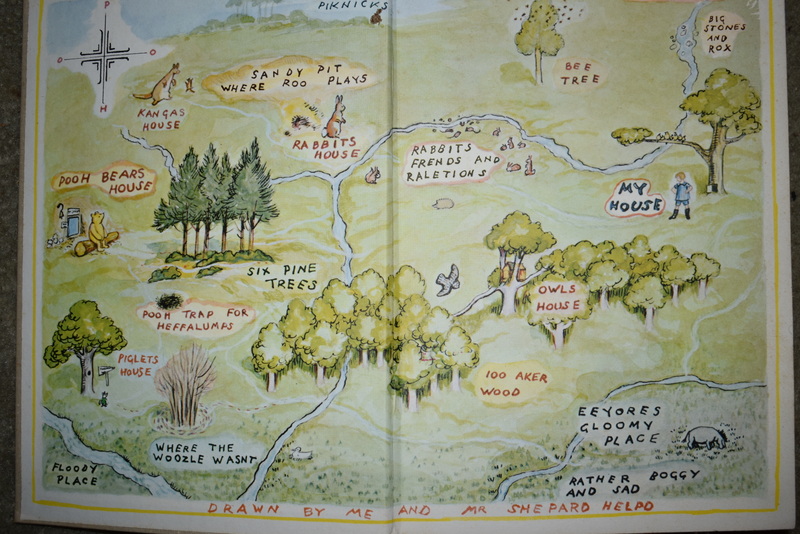 PIKNICKS
P
O
O
H
BIG
STONES
AND
ROX
BEE
TREE
SANDY PIT
WHERE ROO PLAYS
KANGAS
HOUSE
RABBITS
HOUSE
RABBITS
FRENDS AND
RALETIONS
POOH BEARS
HOUSE
MY
HOUSE
SIX PINE
TREES
OWLS
HOUSE
POOH TRAP FOR
HEFFALUMPS
PIGLETS
HOUSE
100 AKER
WOOD
EEYORES
GLOOMY
PLACE
WHERE THE
WOOZLE WASNT
FLOODY
PLACE
RATHER BOGGY
AND SAD
DRAWN BY ME AND MR SHEPARD HELPD